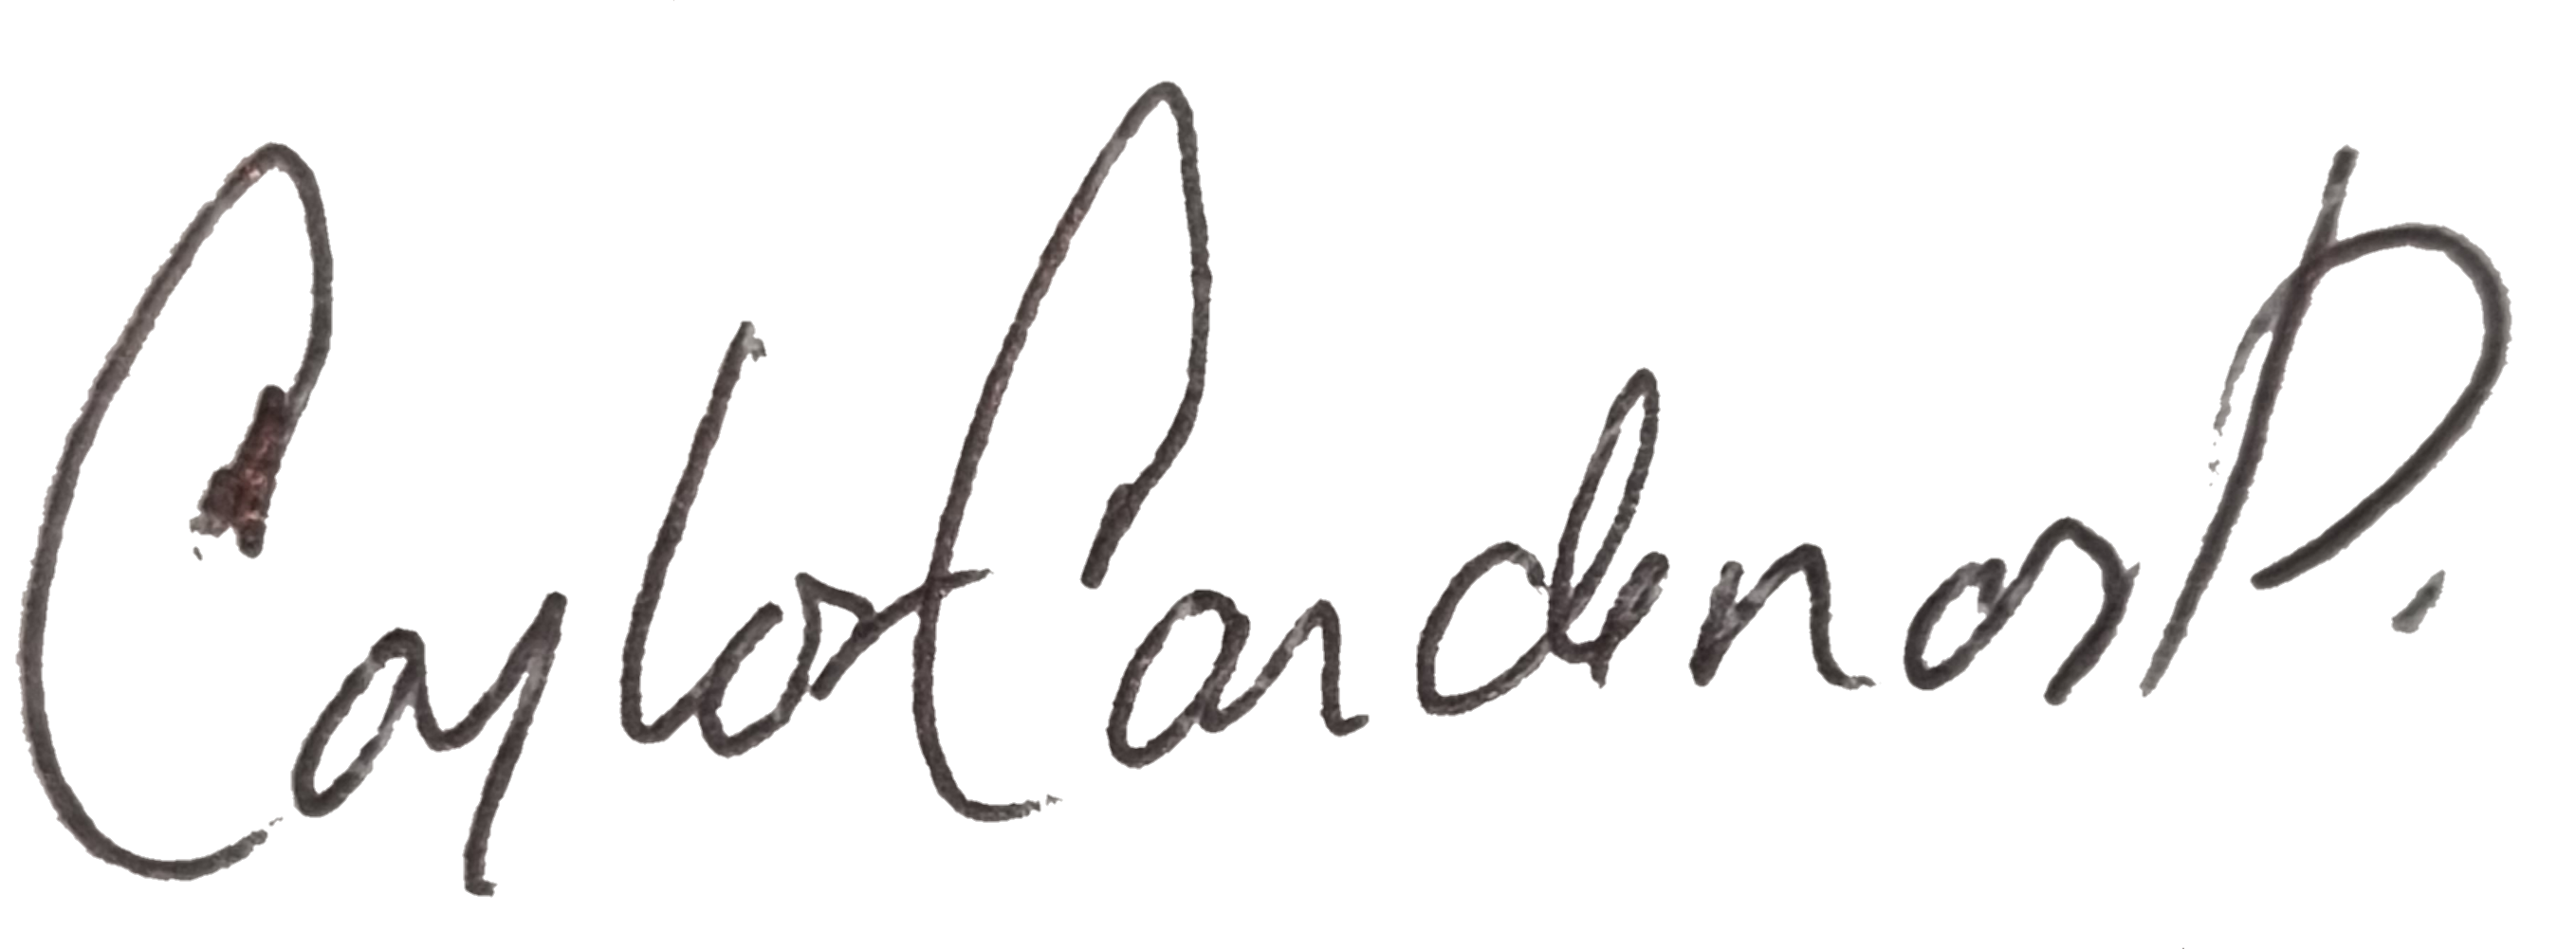 Carlos Cardenas P.